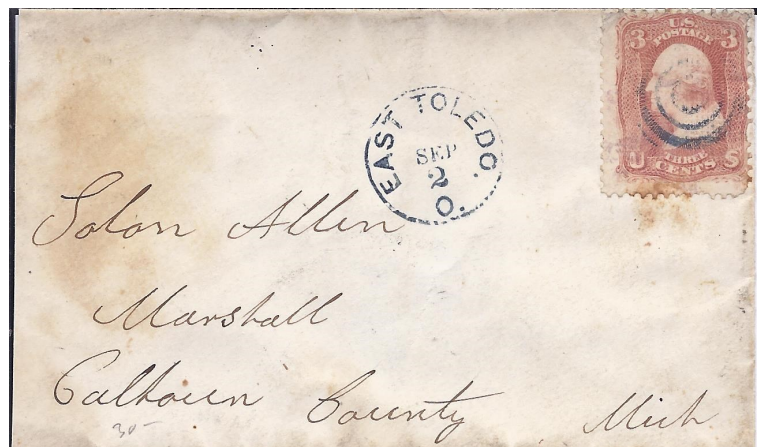 U.S.
POSTAGE
3 3
THREE
CENTS
U S
EAST TOLEDO
SEP
2
O.
Solon Allen
Marshall
Calhoun County Mich
30-